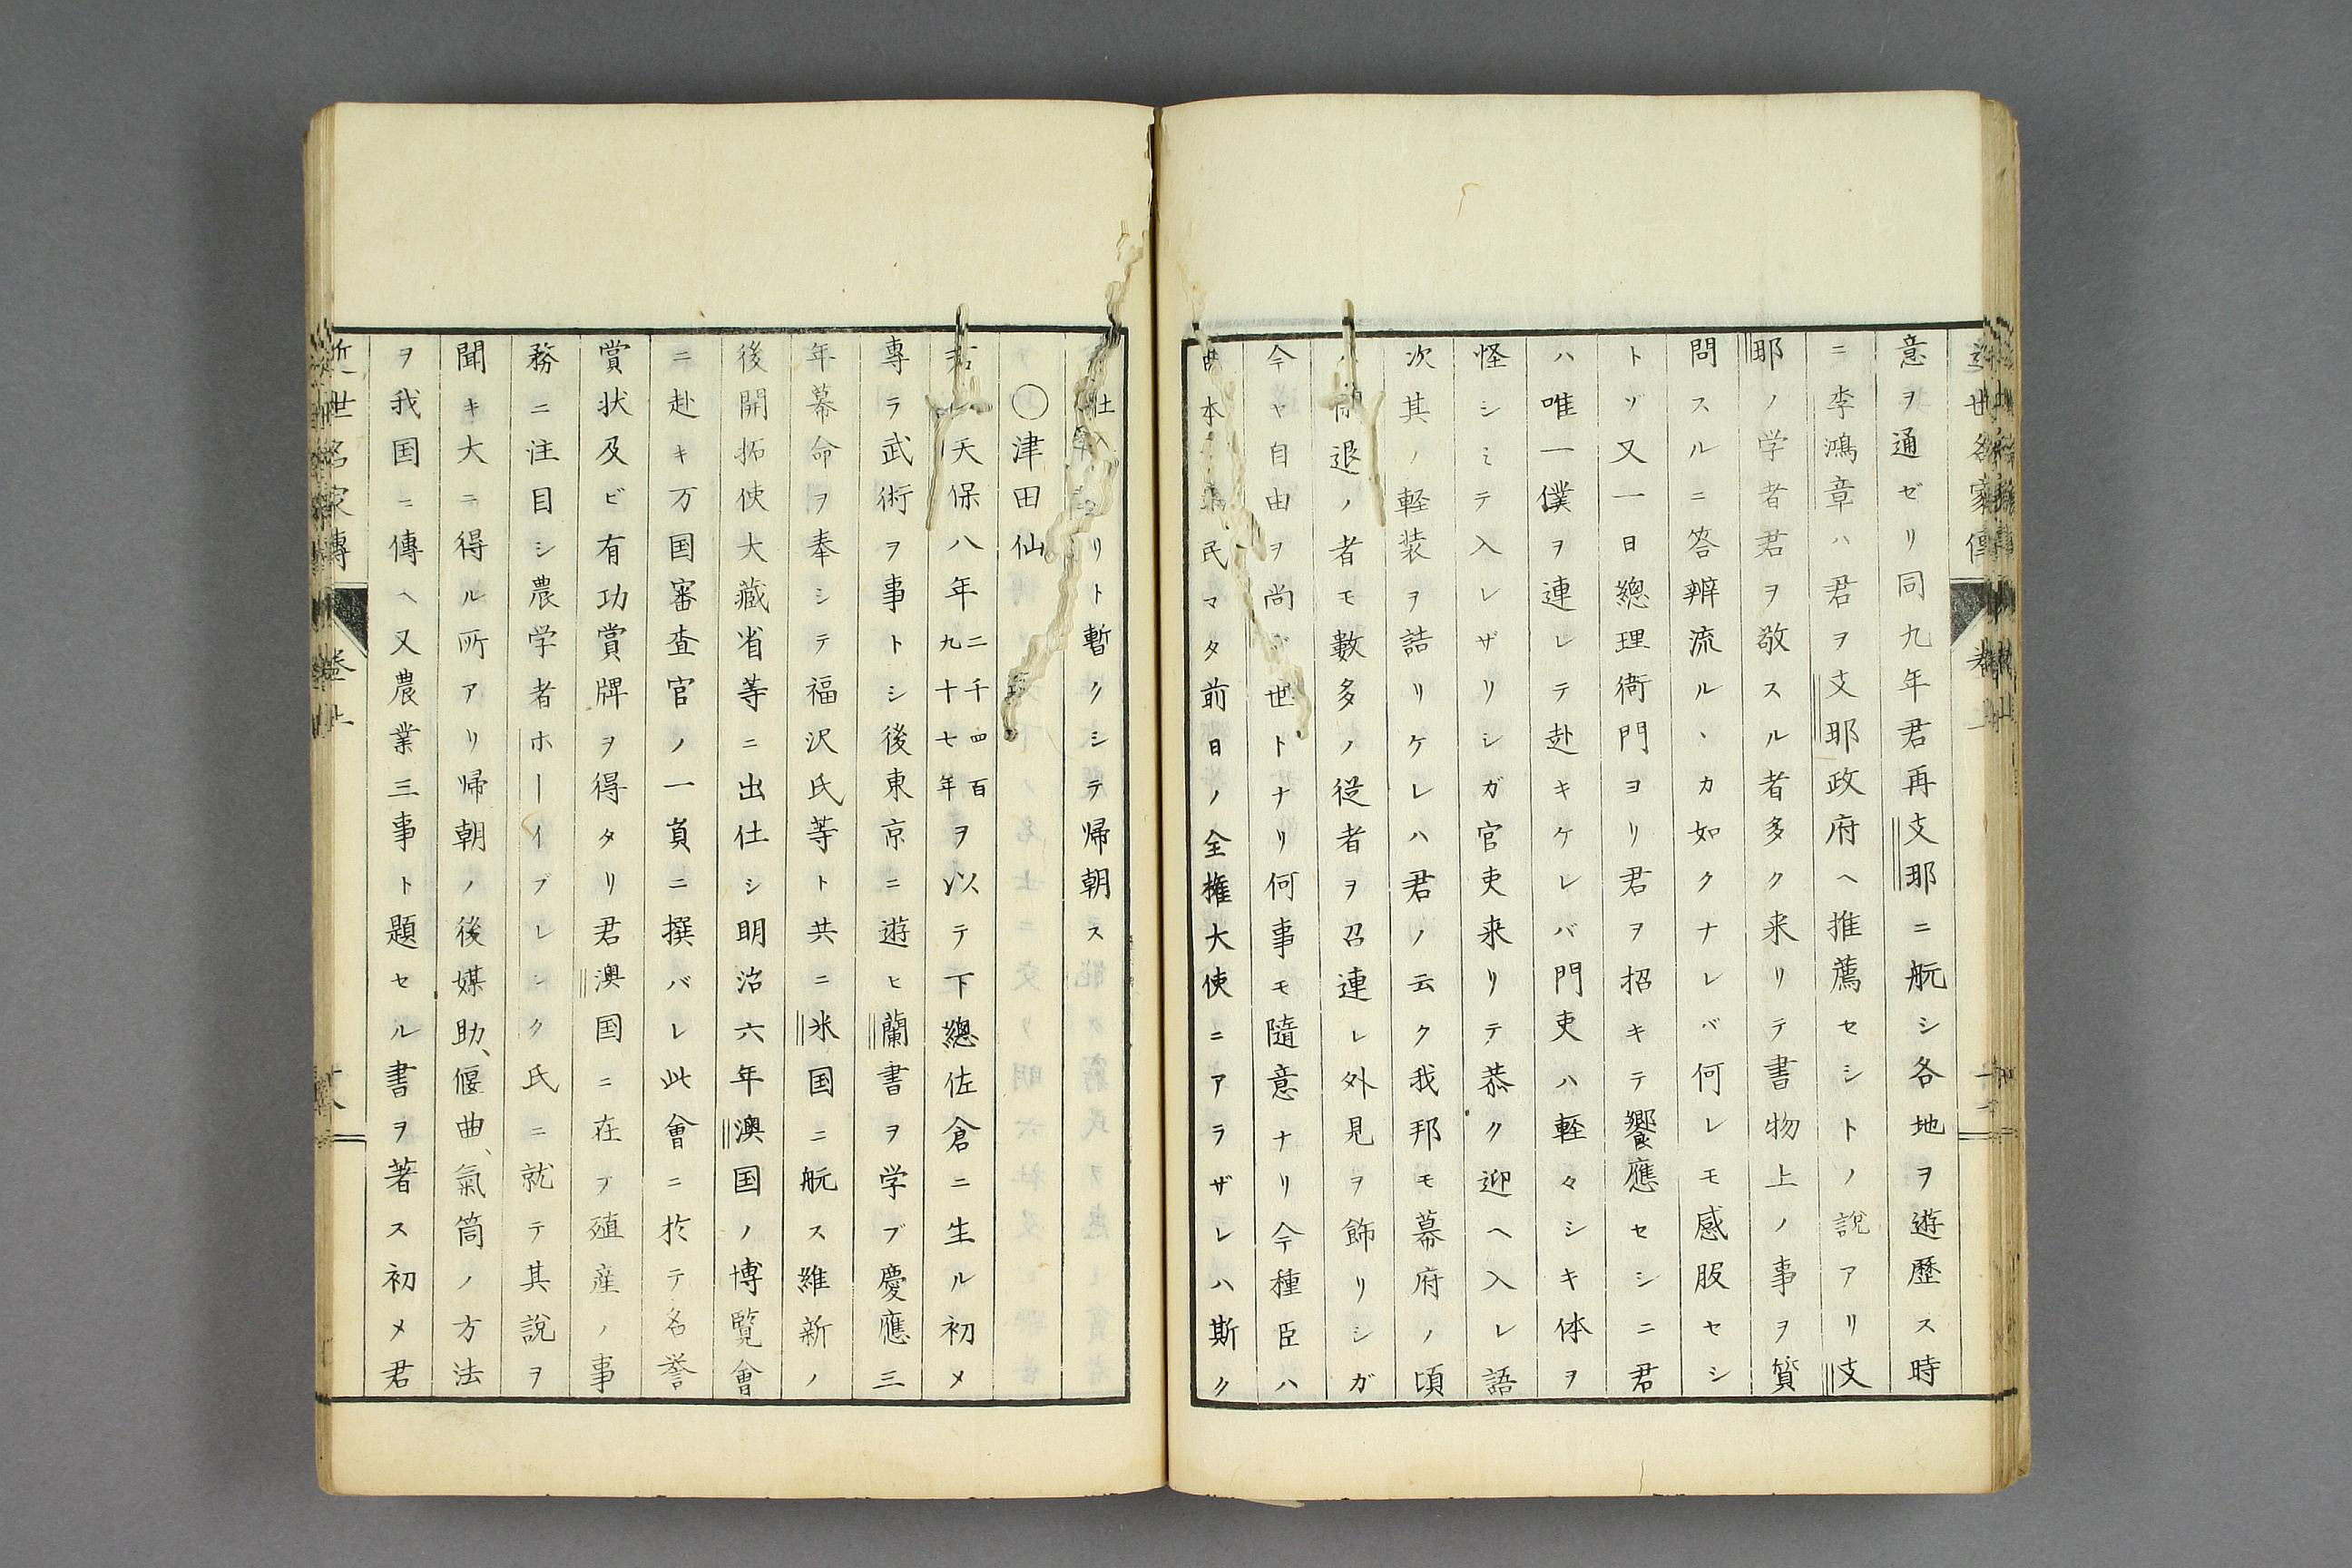 意ヲ通ゼリ同九年君再支耶ニ航シ各地ヲ遊歴ス時
ニ李鴻章ハ君ヲ支耶政府ヘ推薦セシトノ説アリ支
耶ノ学者君ヲ敬スル者多ク来リテ書物上ノ事ヲ質
問スルニ答辨流ルヽカ如クナレバ何レモ感服セシ
トゾ又一日總理衙門ヨリ君ヲ招キテ饗應セシニ君
ハ唯一僕ヲ連レテ赴キケレバ門吏ハ軽々シキ体ヲ
怪シミテ入レザリシガ官吏来リテ恭ク迎ヘ入レ語
次其ノ軽装ヲ詰リケレハ君ノ云ク我邦モ幕府ノ頃
退ノ者モ數多ノ従者ヲ召連レ外見ヲ飾リシガ
今ヤ自由ヲ尚ブ世トナリ何事モ隨意ナリ今種臣ハ
本民マタ前日ノ全権大使ニアラザレハ斯ク
仕リト暫クシテ帰朝ス
〇津田仙
君天保八年二千四百九十七年ヲ以テ下總佐倉ニ生ル初メ
專ラ武術ヲ事トシ後東京ニ遊ヒ蘭書ヲ学ブ慶應三
年幕命ヲ奉シテ福沢氏等ト共ニ米国ニ航ス維新ノ
後開拓使大藏省等ニ出仕シ明治六年澳国ノ博覧會
ニ赴キ万国審査官ノ一員ニ撰バレ此會ニ於テ名誉
賞状及ビ有功賞牌ヲ得タリ君澳国ニ在テ殖産ノ事
務ニ注目シ農学者ホーイブレンク氏ニ就テ其説ヲ
聞キ大ニ得ル所アリ帰朝ノ後媒助、偃曲、氣筒ノ方法
ヲ我国ニ傳ヘ又農業三事ト題セル書ヲ著ス初メ君
近世名家傳 巻上